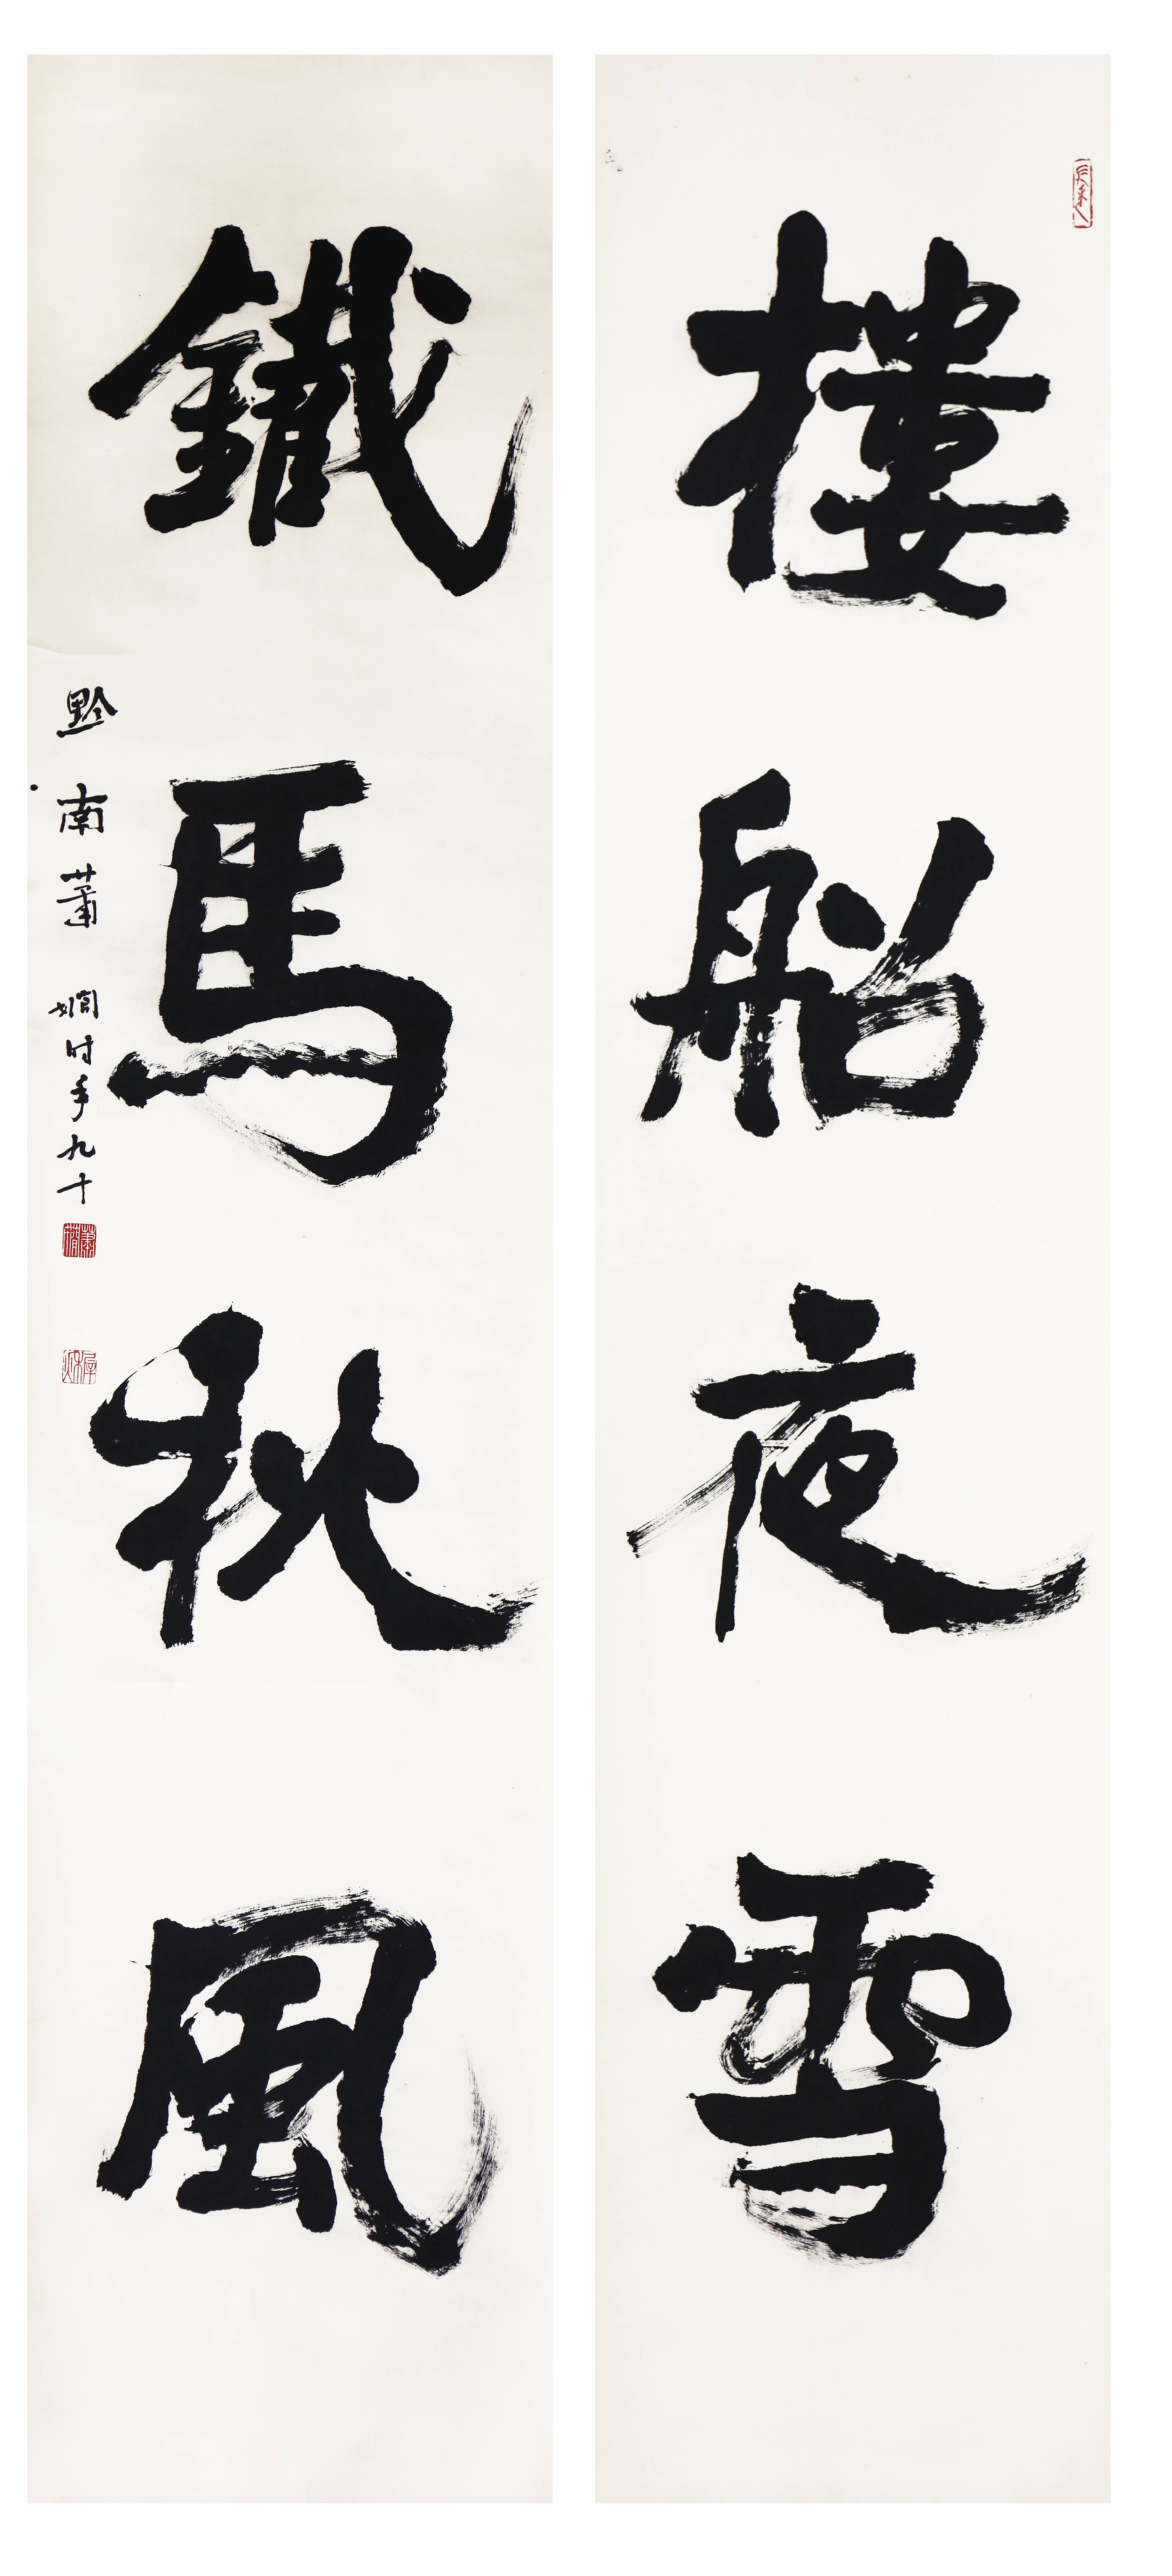 樓船夜雪
鐵馬秋風
黔南蕭嫺时年九十
蕭嫺